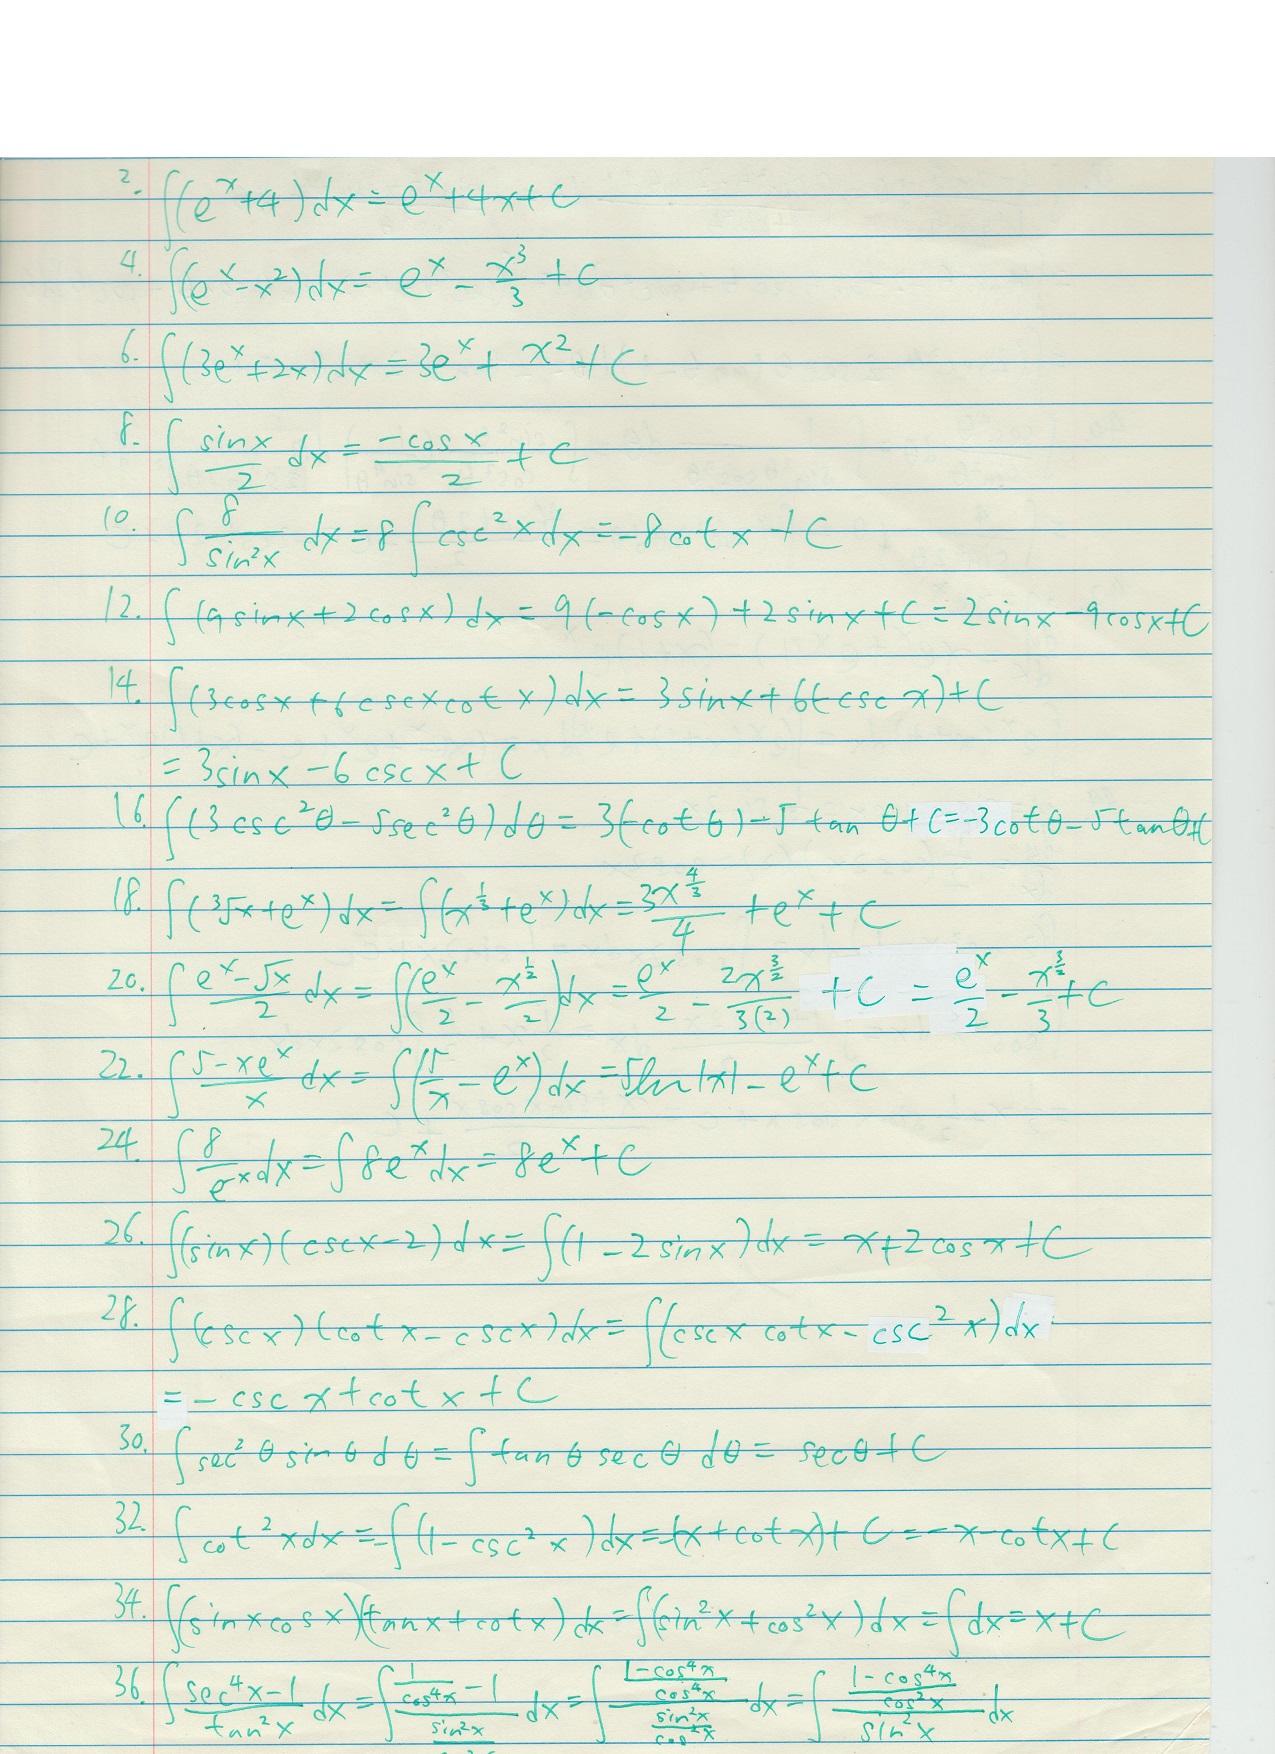 2. ∫(e^x+4)dx = e^x+4x+C
4. ∫(e^x-x^2)dx = e^x - x^3/3 + C
6. ∫(3e^x+2x)dx = 3e^x + x^2 + C
8. ∫ sinx/2 dx = -cosx/2 + C
10. ∫ 8/sin^2x dx = 8∫csc^2x dx = -8cotx + C
12. ∫(9sinx+2cosx)dx = 9(-cosx)+2sinx+C = 2sinx-9cosx+C
14. ∫(3cosx+6cscxcotx)dx = 3sinx+6(-cscx)+C
= 3sinx-6cscx+C
16. ∫(3csc^2θ-5sec^2θ)dθ = 3(-cotθ)-5tanθ+C = -3cotθ-5tanθ+C
18. ∫(∛x+e^x)dx = ∫(x^(1/3)+e^x)dx = 3x^(4/3)/4 + e^x + C
20. ∫ (e^x-√x)/2 dx = ∫(e^x/2 - x^(1/2)/2)dx = e^x/2 - 2x^(3/2)/3(2) + C = e^x/2 - x^(3/2)/3 + C
22. ∫ (5-xe^x)/x dx = ∫(5/x - e^x)dx = 5ln|x| - e^x + C
24. ∫ 8/e^-x dx = ∫8e^x dx = 8e^x + C
26. ∫(sinx)(cscx-2)dx = ∫(1-2sinx)dx = x+2cosx+C
28. ∫(cscx)(cotx-cscx)dx = ∫(cscxcotx-csc^2x)dx
= -cscx+cotx+C
30. ∫sec^2θsinθdθ = ∫tanθsecθdθ = secθ+C
32. ∫cot^2xdx = -∫(1-csc^2x)dx = -(x+cotx)+C = -x-cotx+C
34. ∫(sinxcosx)(tanx+cotx)dx = ∫(sin^2x+cos^2x)dx = ∫dx = x+C
36. ∫ (sec^4x-1)/tan^2x dx = ∫ (1/cos^4x - 1)/(sin^2x/cos^2x) dx = ∫ ((1-cos^4x)/cos^4x)/(sin^2x/cos^2x) dx = ∫ ((1-cos^4x)/cos^2x)/sin^2x dx